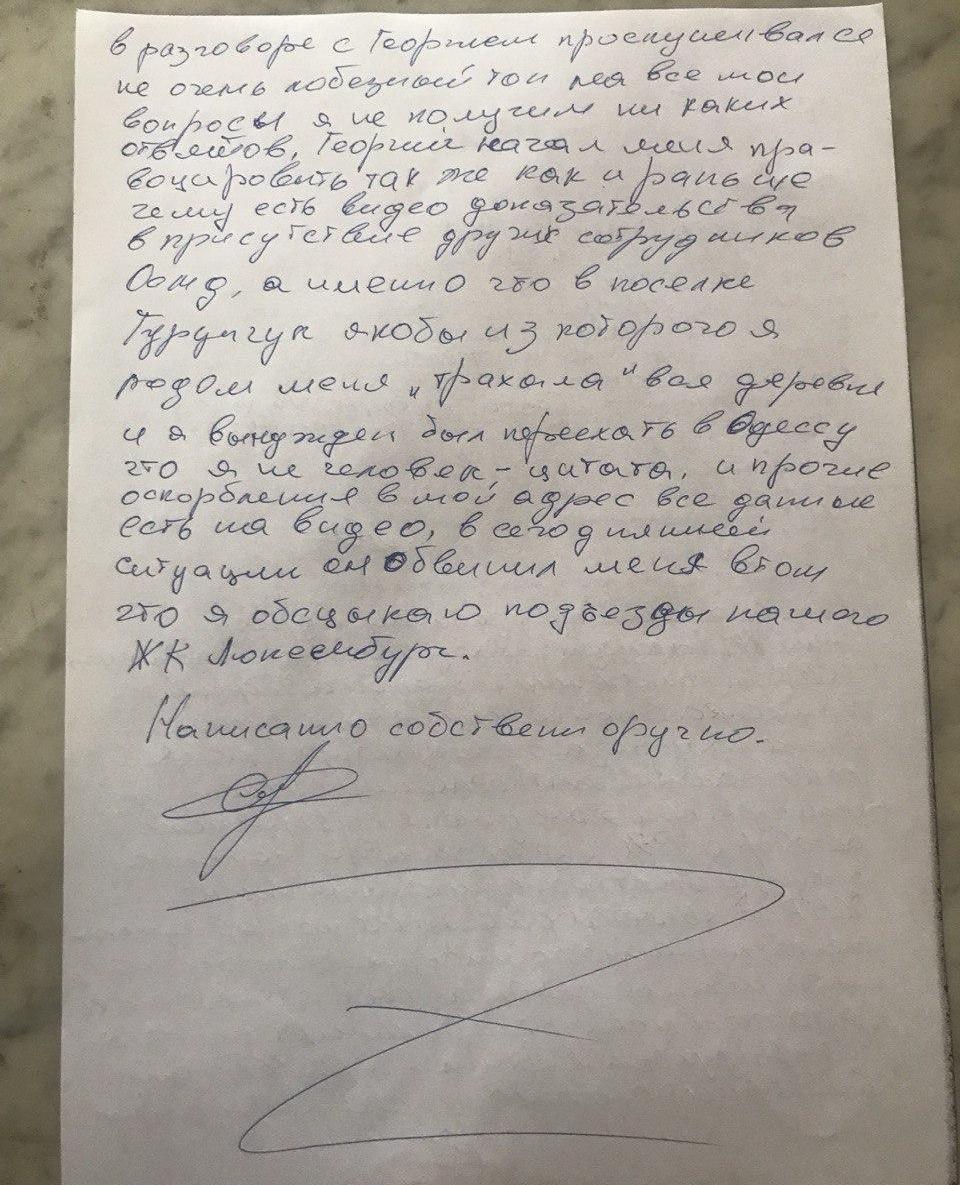 в разговоре с Георгием прослушивался
не очень любезный тон на все мои
вопросы я не получил ни каких
ответов, Георгий начал меня пра-
воцировать так же как и раньше
чему есть видео доказательства
в присутствие других сотрудников
а именно что в поселке
якобы из которого я
родом меня „трахала" вся деревня
и я вынужден был переехать в Одессу
что я не человек, - цитата, и прочие
оскорбления в мой адрес все данные
есть на видео, в сегодняшней
ситуации он обвинил меня втом
что я обсцыкаю подъезды нашего
ЖК Люксембург.
Написанно собственноручно.